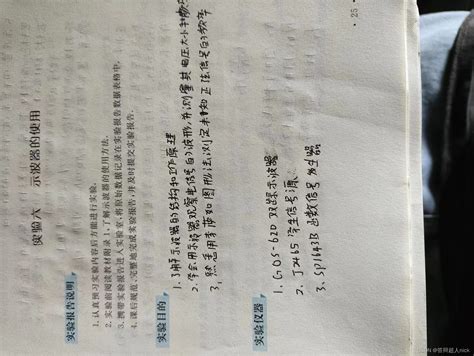 实验六 示波器的使用
实验报告说明
1. 认真预习实验内容后方能进行实验。
2. 实验前阅读教材附录 1,了解示波器的使用方法。
3. 携带实验报告进入实验室,将原始数据记录在实验报告数据表格中。
4. 课后规范、完整地完成实验报告,并及时提交实验报告。
实验目的
1. 了解示波器的结构和工作原理
2. 学会用示波器观察电信号的波形,并测量其电压大小和频率
3. 熟悉用李萨如图形法测定未知正弦信号的频率
实验仪器
1. GOS-620 双踪示波器
2. J2465 学生信号源
3. SP1643B 函数信号发生器
· 25 ·